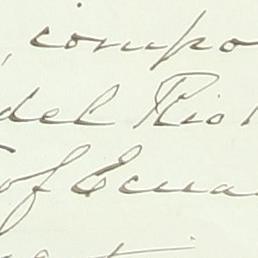 , compo
del Rio
of Ecua